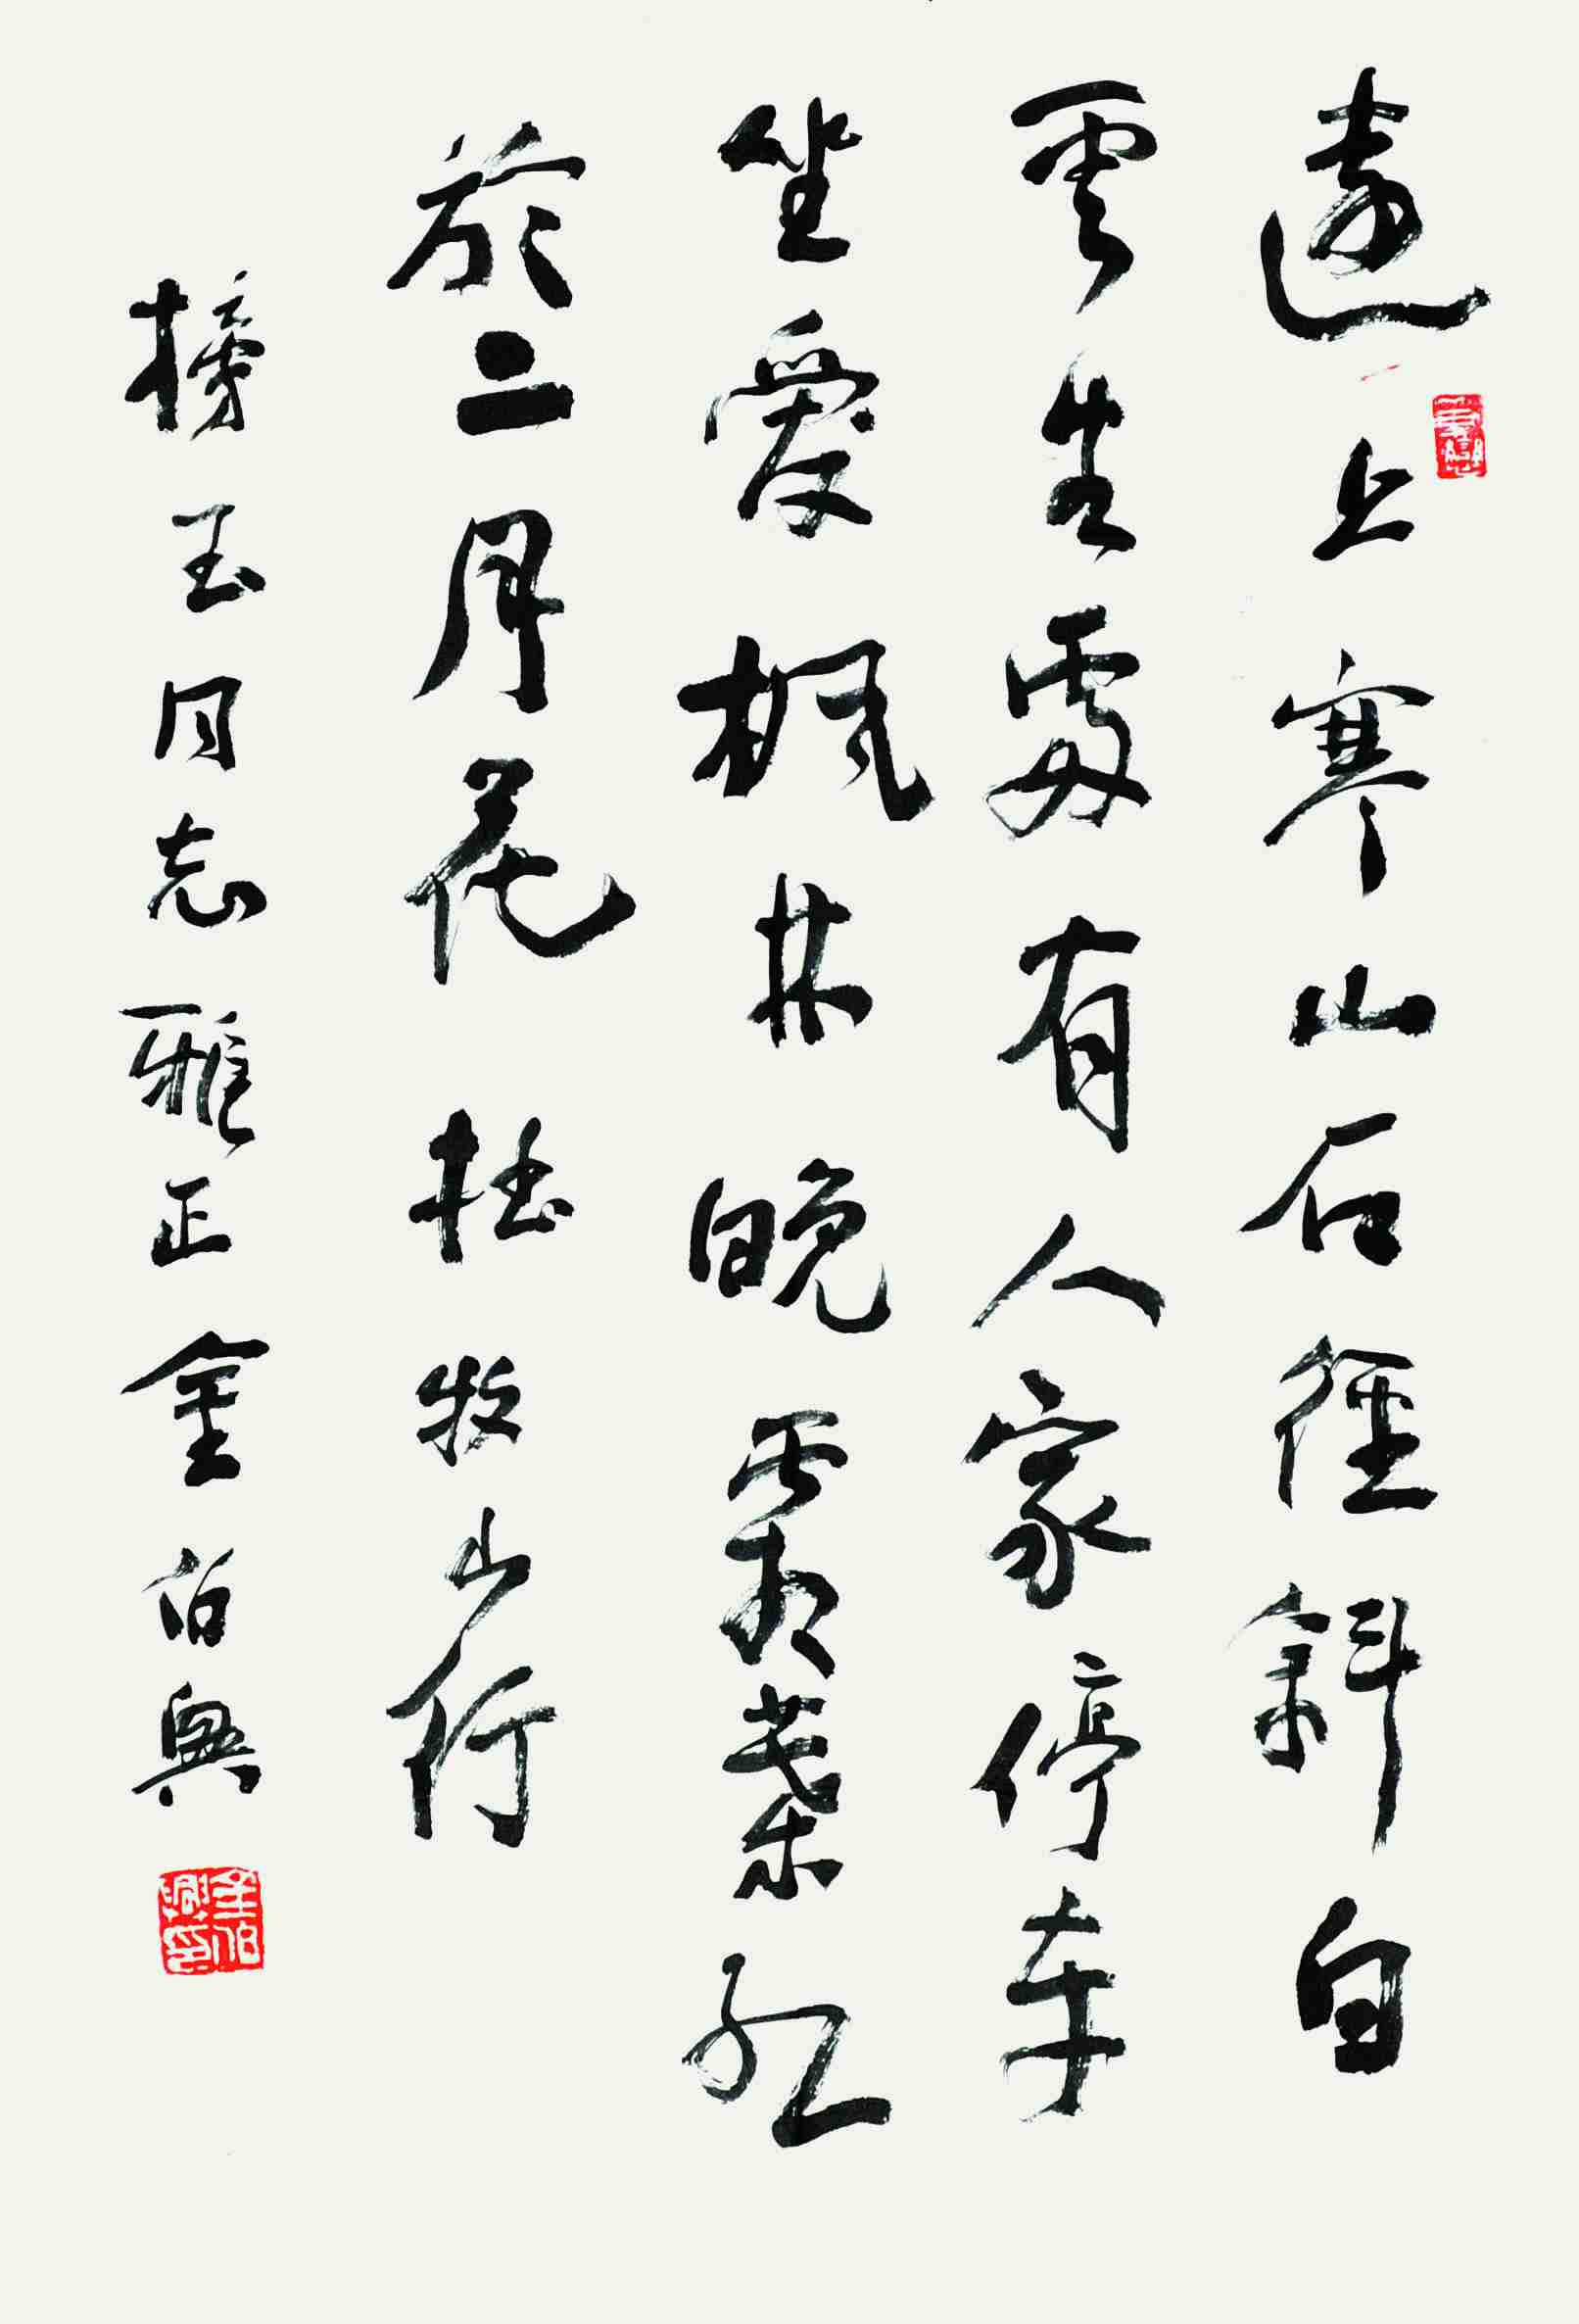 遠上寒山石徑斜白
雲生處有人家停車
坐愛楓林晚霜葉紅
於二月花 杜牧山行
榜玉同志雅正 金伯興
金伯興印